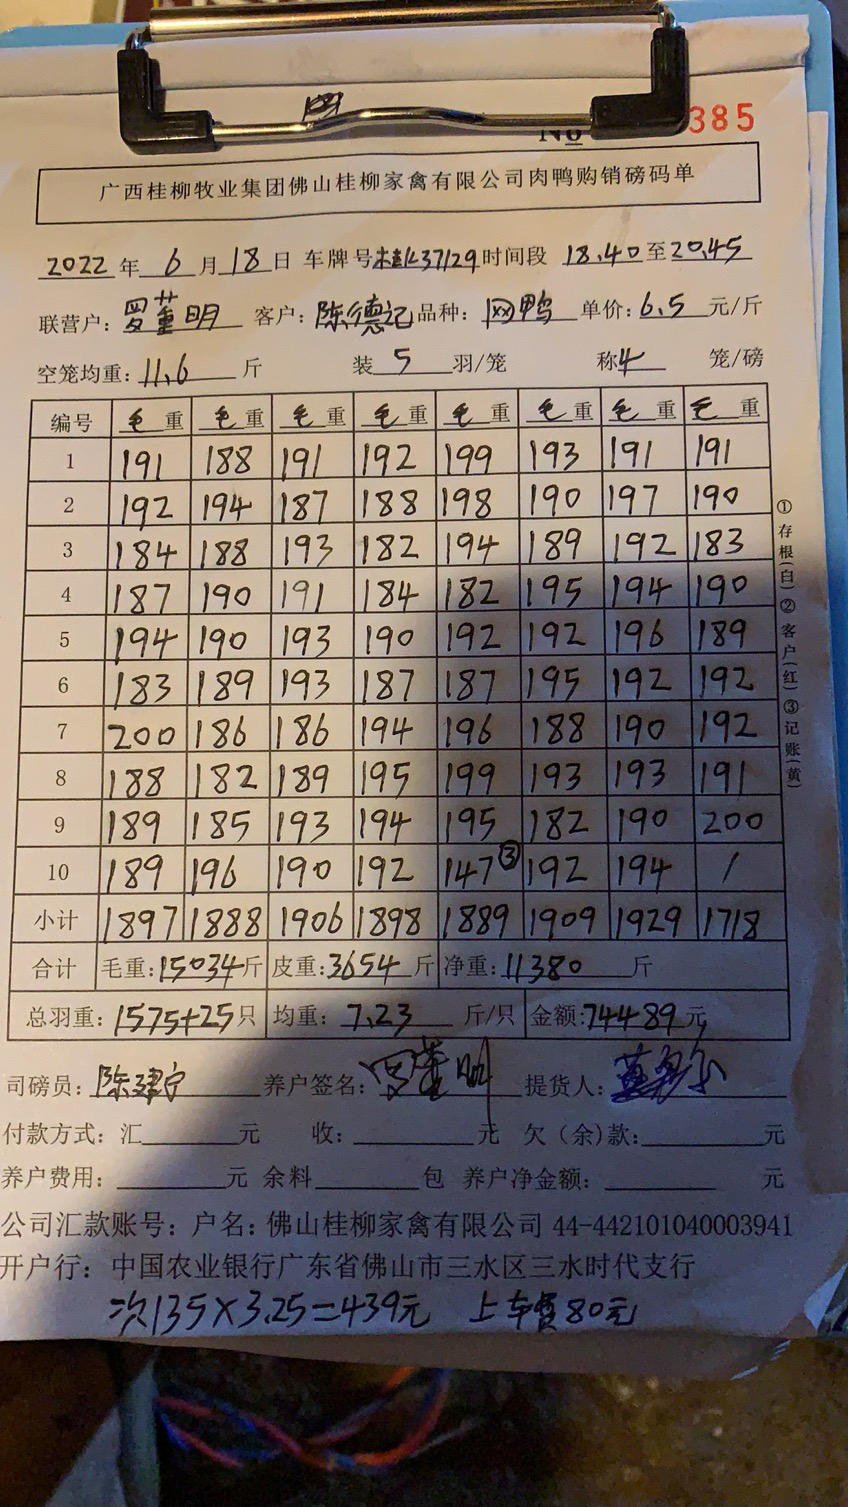 No 385
广西桂柳牧业集团佛山桂柳家禽有限公司肉鸭购销磅码单
2022年6月18日 车牌号桂K37129时间段 18.40至20.45
联营户：罗董明 客户：陈德记 品种：网鸭 单价：6.5元/斤
空笼均重：11.6斤 装5羽/笼 称4笼/磅
编号 毛重 毛重 毛重 毛重 毛重 毛重 毛重 毛重
1 191 188 191 192 199 193 191 191
2 192 194 187 188 198 190 197 190
3 184 188 193 182 194 189 192 183
4 187 190 191 184 182 195 194 190
5 194 190 193 190 192 192 196 189
6 183 189 193 187 187 195 192 192
7 200 186 186 194 196 188 190 192
8 188 182 189 195 199 193 193 191
9 189 185 193 194 195 182 190 200
10 189 196 190 192 147③ 192 194 /
小计 1897 1888 1906 1898 1889 1909 1929 1718
合计 毛重：15034斤 皮重：3654斤 净重：11380斤
总羽重：1575+25只 均重：7.23斤/只 金额：74489元
司磅员：陈建宁 养户签名：罗董明 提货人：
付款方式：汇 元 收： 元 欠（余）款： 元
养户费用： 元 余料 包 养户净金额： 元
公司汇款账号：户名：佛山桂柳家禽有限公司 44-442101040003941
开户行：中国农业银行广东省佛山市三水区三水时代支行
次135×3.25=439元 上车费80元
①存根(白)②客户(红)③记账(黄)